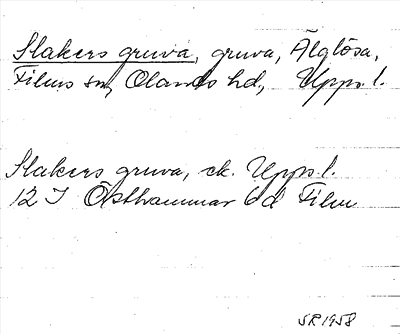 Slakers gruva, gruva, Älglösa,
Films sn, Olands hd, Upps. l.
Slakers gruva, ek. Upps l.
12 I Östhammar 6d Film
SR 1958